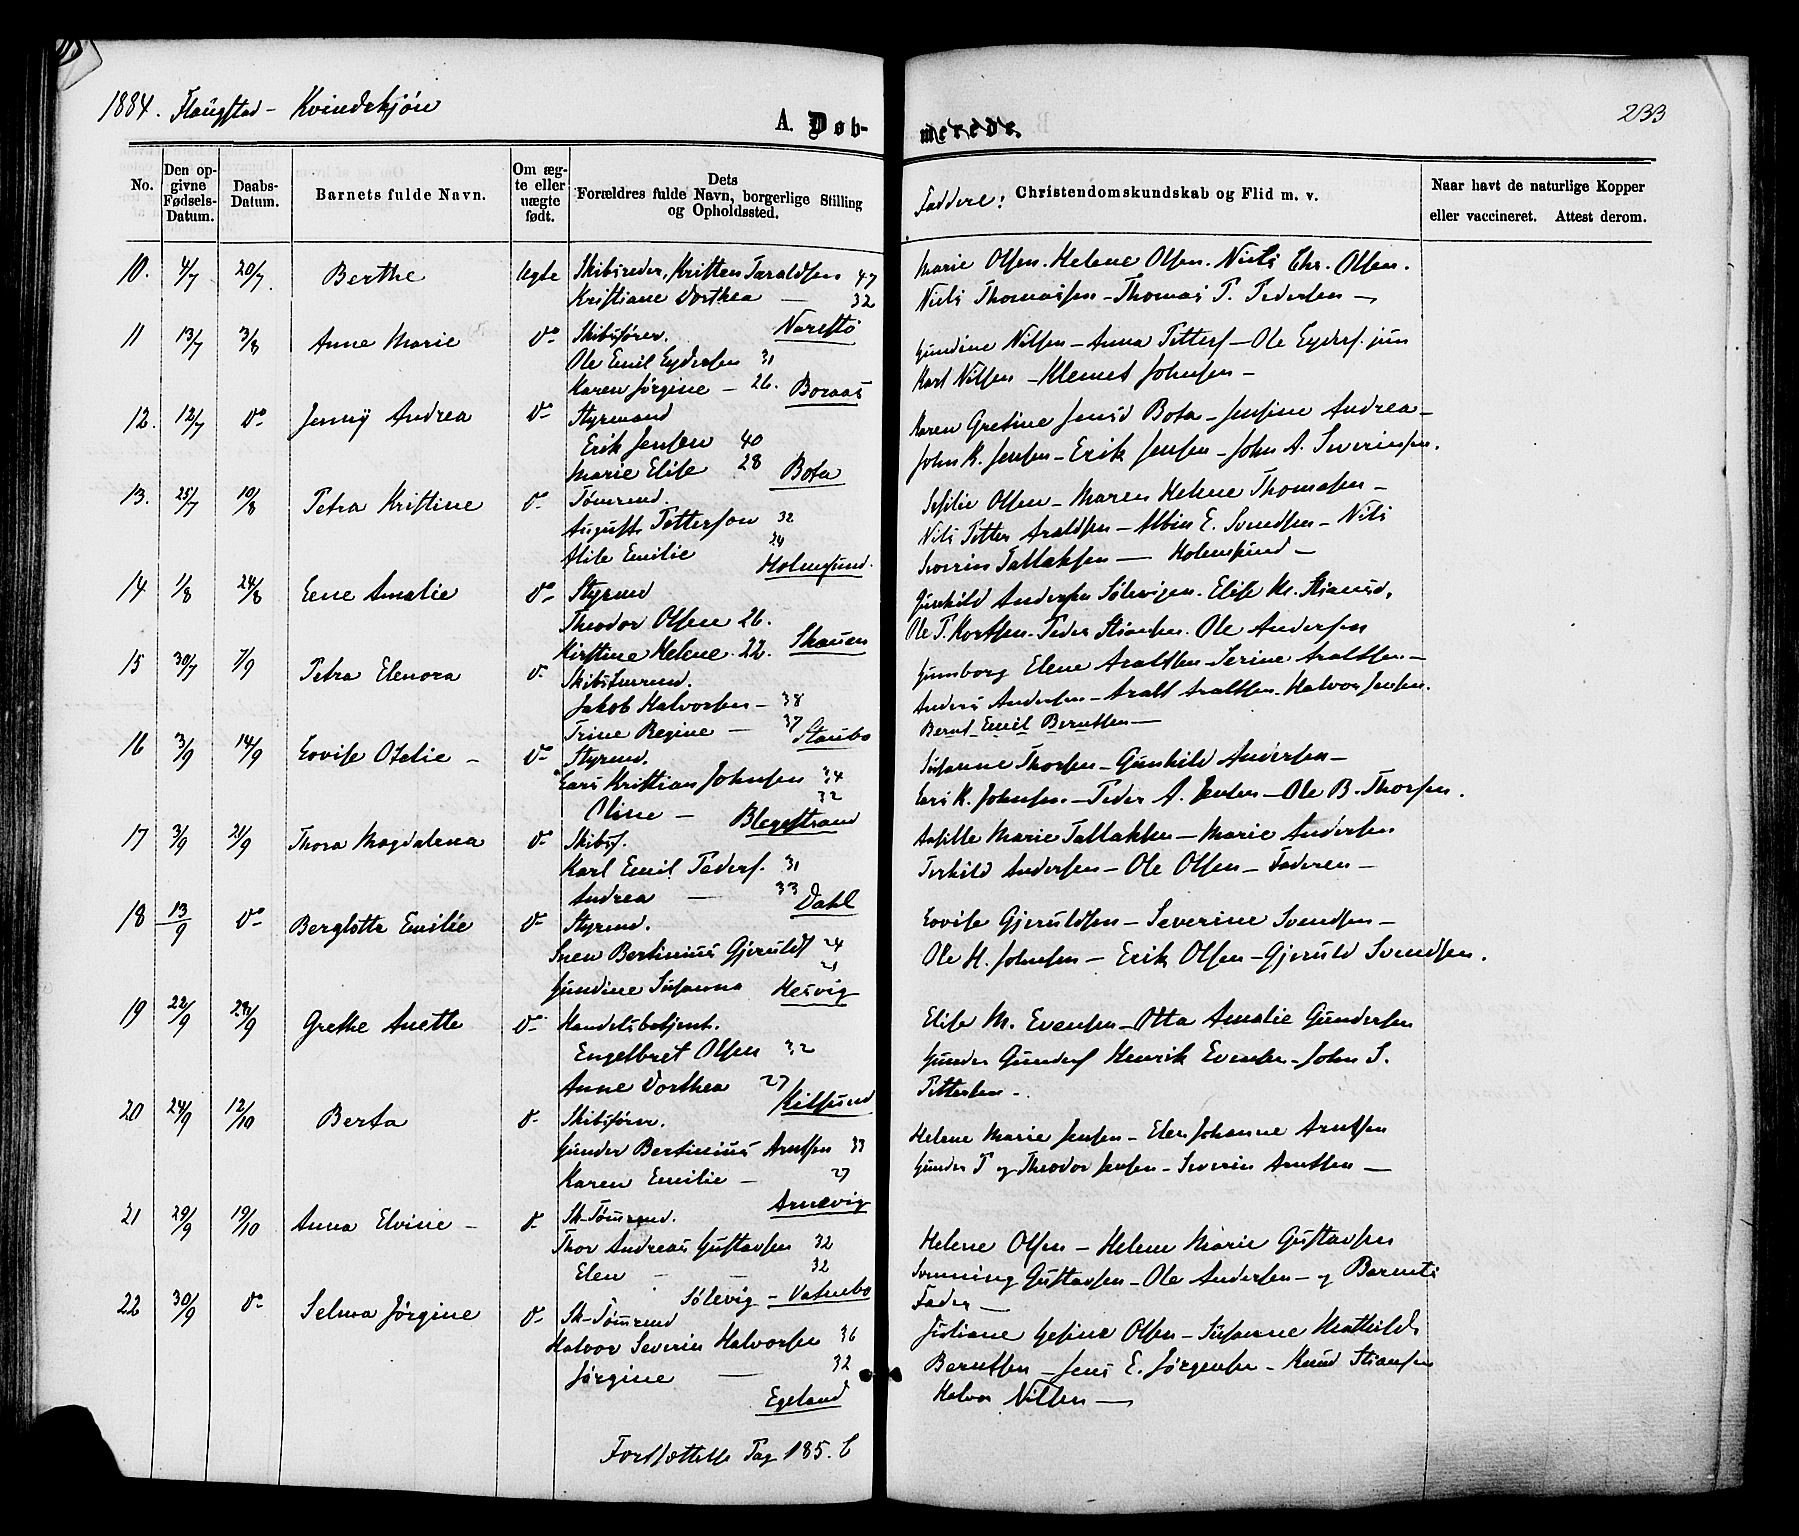 1884. Flaugstad - Kvindekjøn
A. Døb-
merede.
233
No.
Den op-
givne
Fødsels-
Datum.
Daabs-
Datum.
Barnets fulde Navn.
Om æg-
te eller
uægte
født.
Dets
Forældres fulde Navn, borgerlige Stilling
og Opholdssted.
Faddere: Christendomskundskab og Flid m. v.
Naar havt de naturlige Kopper
eller vaccineret. Attest derom.
10. 4/7 20/7 Berthe ægte Skibsreder, Kristen Taraldsen 47
Kristiane Dorthea — 32
Narestø
Marie Olsen. Helene Olsen. Niels Chr. Olsen.
Niels Thomassen - Thomas T. Pedersen —
11 13/7 3/8 Anne Marie do Skibsfører.
Ole Emil Eydersen 31
Karen Jørgine — 26. Boraas
Gundine Nilsen - Anna Petters - Ole Eyders. jun
Karl Nilsen - Klemet Johnsen -
12. 12/7 do Jenny Andrea do Styrmand
Erik Jensen 40
Marie Elise 28 Bota
Karen Gretine Jensd Bota - Jensine Andrea -
John K. Jensen - Erik Jensen - John A. Severinsen.
13. 25/7 10/8 Petra Kristine do Tømrmd.
August Petterson 32
Alite Emilie 24
Holmesund.
Sesilie Olsen - Maren Helene Thomasen -
Nils Petter Araldsen - Albin E. Svendsen - Nils
Severin Tallaksen — Holmesund -
14 1/8 24/8 Lene Amalie do Styrmd
Theodor Olsen 26.
Kirstine Helene. 22. Skauen
Gunhild Andersen Sølevigen. Elise K. Stiansd,
Ole T. Kortsen. Peder Stiansen. Ole Andersen
15 30/7 7/9 Petra Elenora do Skibstmrmd.
Jakob Halvorsen - 38
Trine Regine — 37 Staubo
Gunborg Elene Araltsen - Serine Araltsen -
Anders Andersen - Aralt Araltsen. Halvor Jensen.
Bernt Emil Berntsen —
16 3/9 14/9 Lovise Otelie - do Styrmd.
Lars Kristian Johnsen 34
Oline — 32
Blegestrand
Susanne Thorsen - Gunhild Andersen -
Lars K. Johnsen - Peder A. Jensen - Ole B. Thorsen.
17 3/9 21/9 Thora Magdalena do Skibsf.
Karl Emil Peders. 31
Andrea — 33 Dahl
Aasille Marie Tallaksen - Marie Andersen
Terkild Andersen - Ole Olsen - Faderen -
18 13/9 do Berglotte Emilie do Styrmd.
Sven Bertinius Gjerulds 24
Gundine Susanna 21 Hesvig
Lovise Gjeruldsen - Severine Svendsen -
Ole H. Johnsen - Erik Olsen - Gjeruld Svendsen.
19 22/9 28/9 Grethe Anette do Handelsbetjent.
Engelbret Olsen 32
Anne Dorthea 27
Kilsund
Elise M. Evensen - Otta Amalie Gundersen
Gunder Gunders Henrik Evensen - John S.
Pettersen -
20 24/9 12/10 Berta do Skibsfører.
Gunder Bertinius Arntsen 33
Karen Emilie - 27
Arnevig
Helene Marie Jensen - Elen Johanne Arntsen
Gunder T og Theodor Jensen - Severin Arntsen —
21 29/9 19/10 Anna Elvine - do Sk-Tømrmd.
Thor Andreas Gustavsen 32
Elen — 32
Sølevig - Vatnebo
Helene Olsen - Helene Marie Gustavsen
Svenning Gustavsen - Ole Andersen - og Barnets
Fader —
22 30/9 do Selma Jørgine do Sk-Tømrmd
Halvor Severin Halvorsen 36
Jørgine — 32
Egeland
Juliane Gesine Olsen - Susanne Mathilde
Berntsen - Jens E. Jørgensen - Knud Stiansen
Halvor Nilsen —
Fortsættelse Pag 185. b